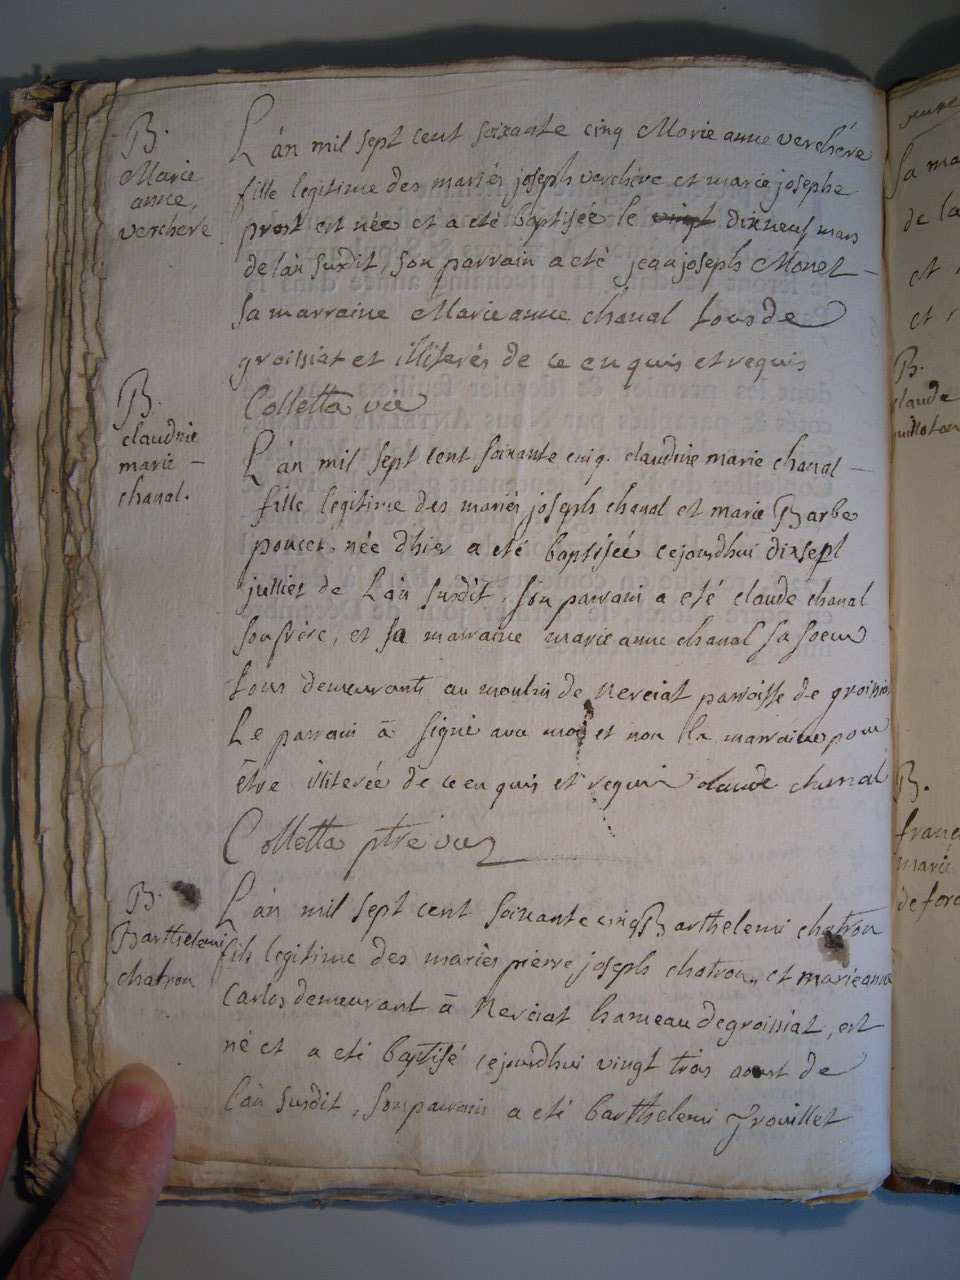 B.
Marie
anne,
verchere
L'an mil sept cent soixante cinq Marie anne verchére
fille legitime des mariés joseph verchére et marie josephe
prost est née et a eté baptisée le vingt dixneuf mars
de lan susdit, son parrain a eté jean joseph Monet -
sa marraine Marie anne chanal tous de
groissiat et illiterés de ce enquis et requis
Colletta vic
B.
claudine
marie -
chanal.
L'an mil sept cent soixante cinq. claudine marie chanal -
fille legitime des mariés joseph chanal et marie Barbe
poncet née d'hier a eté baptisée cejourdhui dixsept
julliet de L'an susdit, son parrain a eté claude chanal
son frère, et sa marraine marie anne chanal sa soeur
tous demeurants au moulin de Nerciat parroisse de groissia
Le parrain à signé avec moi et non la marraine pour
être illiterée de ce enquis et requis claude chanal
Colletta ptre vic
B.
Barthelemi
chatron
L'an mil sept cent soixante cinq Barthelemi chatron
fils legitime des mariés pierre joseph chatron, et marie anne
Carlos demeurant à Nerciat hameau de groissiat, est
né et a eté baptisé cejourdhui vingt trois aoust de
l'an susdit, son parrain a eté barthelemi Trouillet
sa ma
de la
et
et
B.
claude
B.
marie